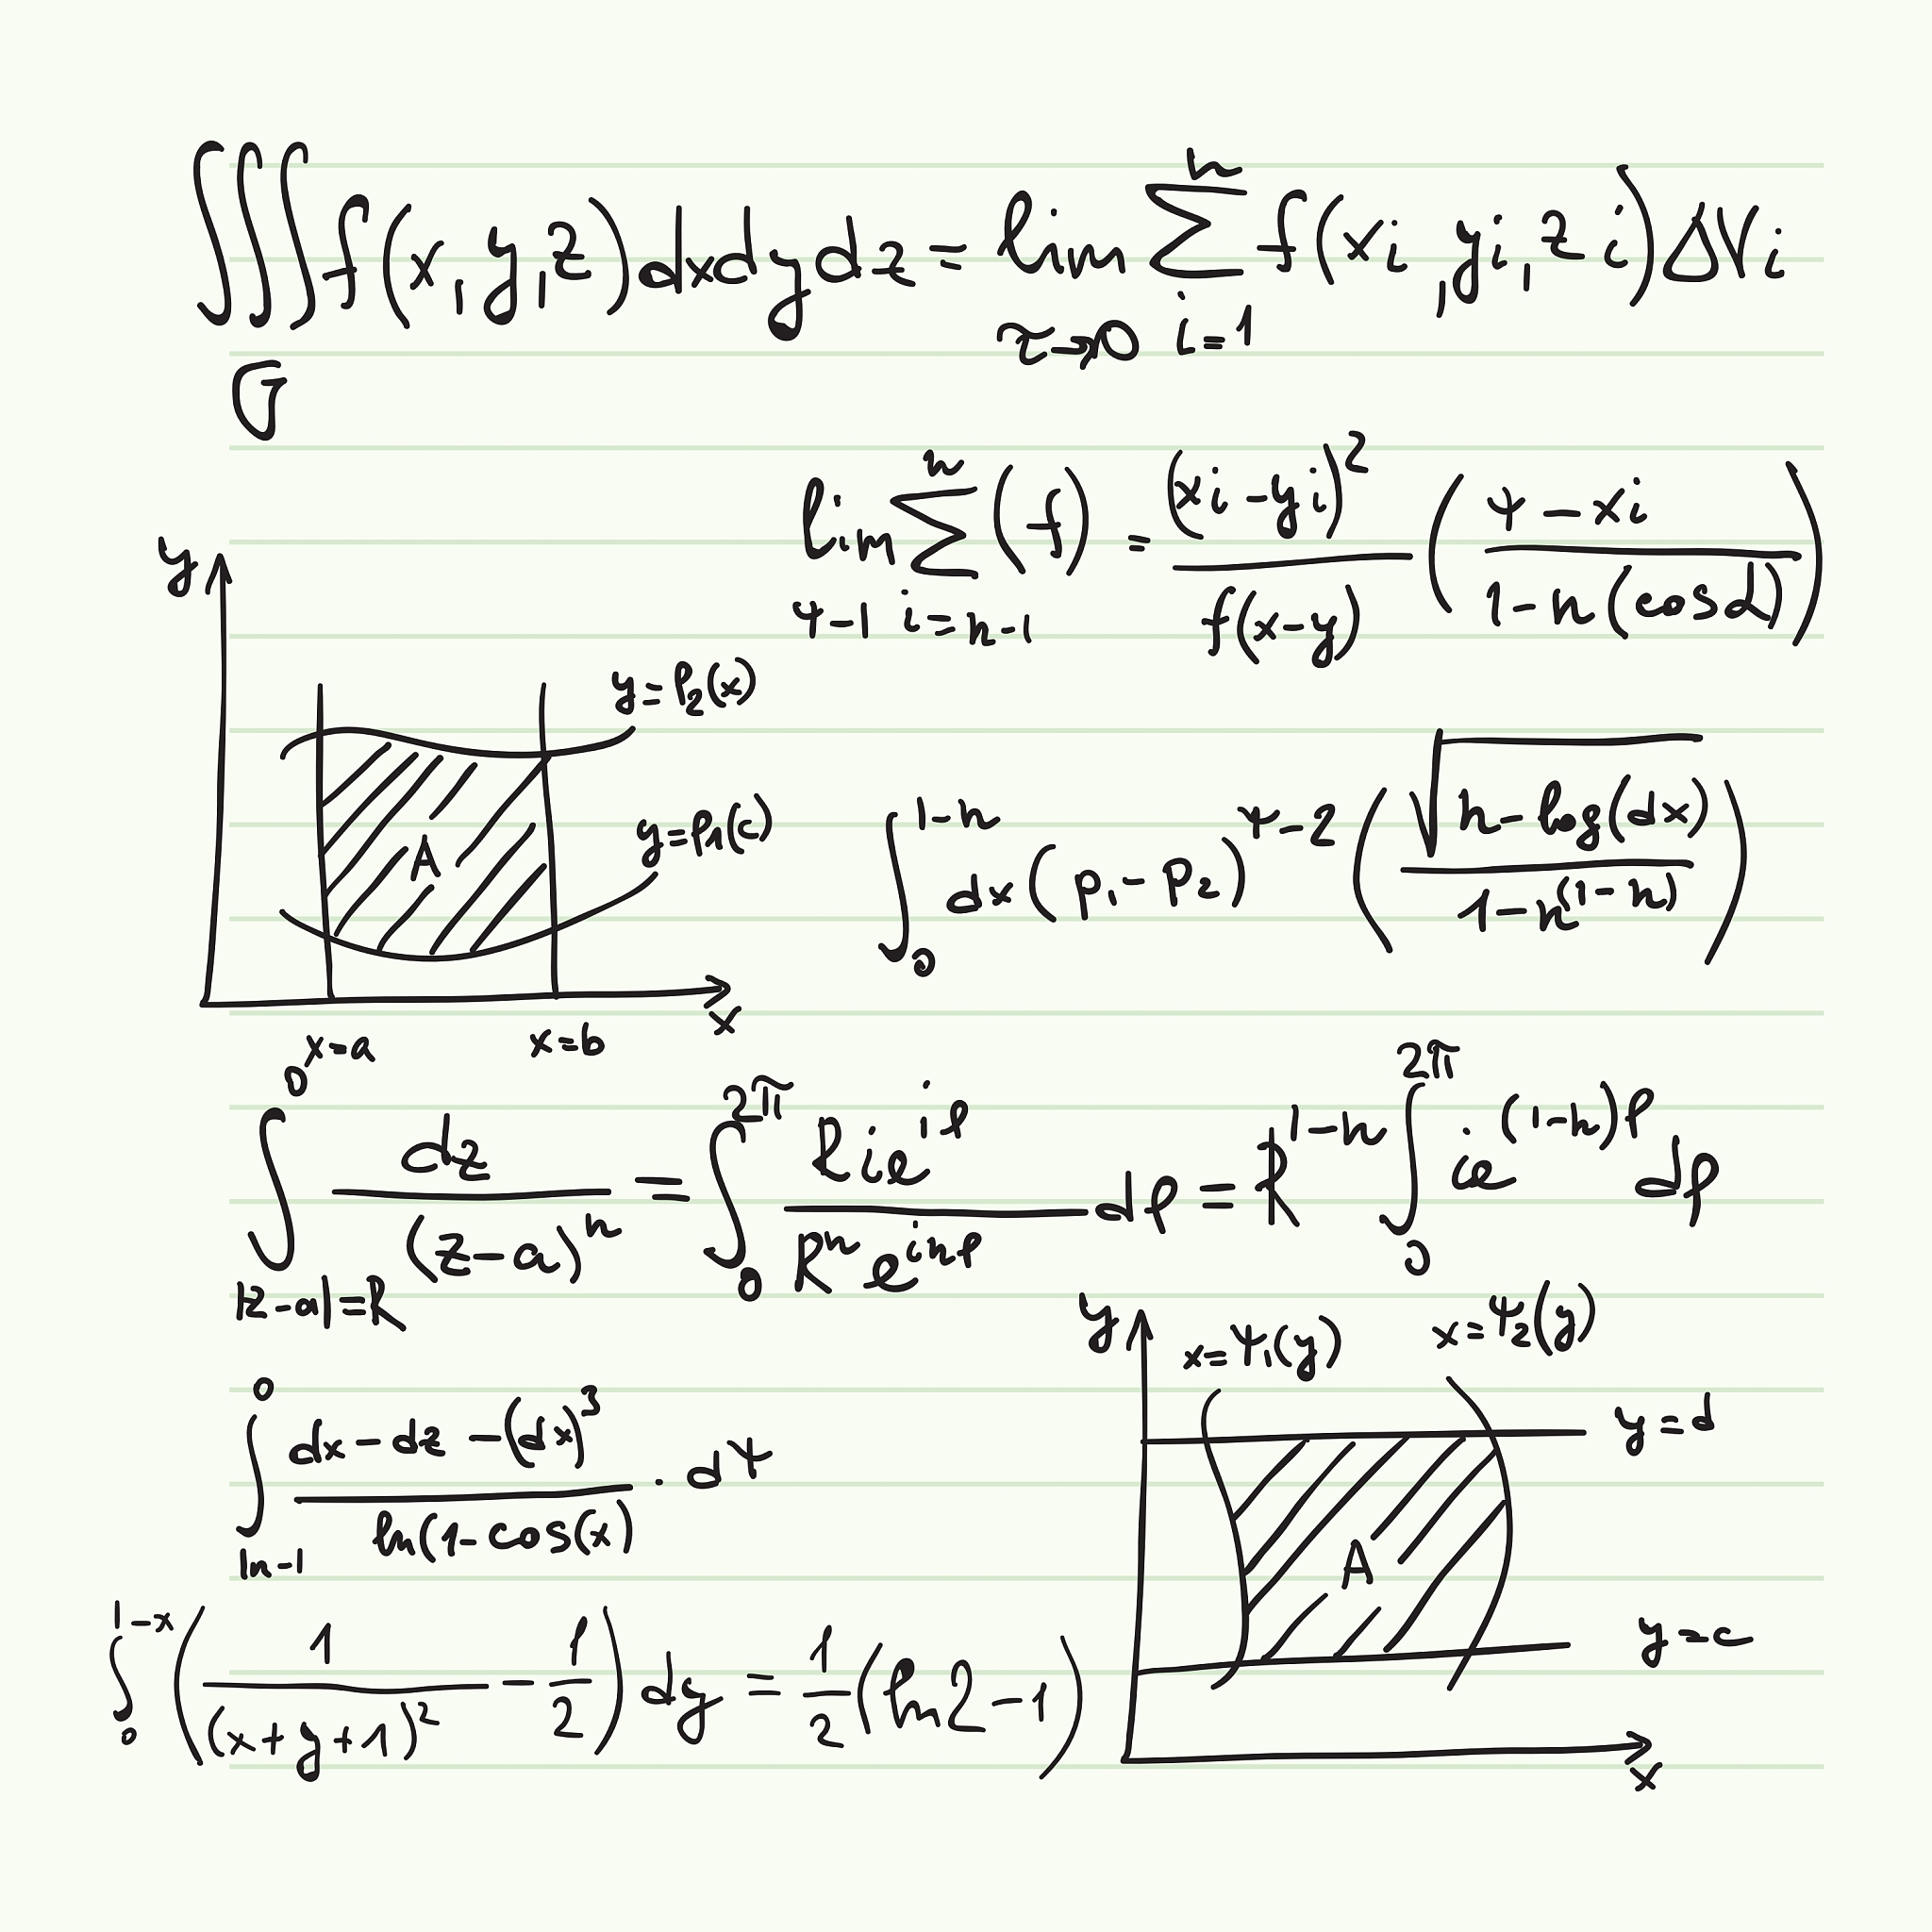 ∭_σ f(x, y, z) dx dy dz = lim_{τ→0} ∑_{i=1}^{n} f(xi, yi, zi) ΔVi
lim_{ψ-1} ∑_{i=n-1}^{n} (f) = (xi - yi)² / f(x-y) (ψ - xi / 1-n(cosα))
y
y=ρ₂(x)
y=ρ₁(c)
A
x=a
x=b
x
∫_0^{1-n} dx(p₁ - p₂)^{ψ-2} (√(n-log(dx)) / 1-n^{(1-n)})
∫_{|z-a|=R}^{0} dz / (z-a)^n = ∫_0^{2π} Rie^{iρ} / R^n e^{inρ} dρ = R^{1-n} ∫_0^{2π} ie^{(1-n)ρ} dρ
∫_{ln-1}^{0} dx - dz - (dx)³ / ln(1-cos(x) · dψ
y
x=ψ₁(y)
x=ψ₂(y)
y=d
A
y=c
x
∫_0^{1-x} (1 / (x+y+1)² - 1/2) dy = 1/2 (ln2-1)